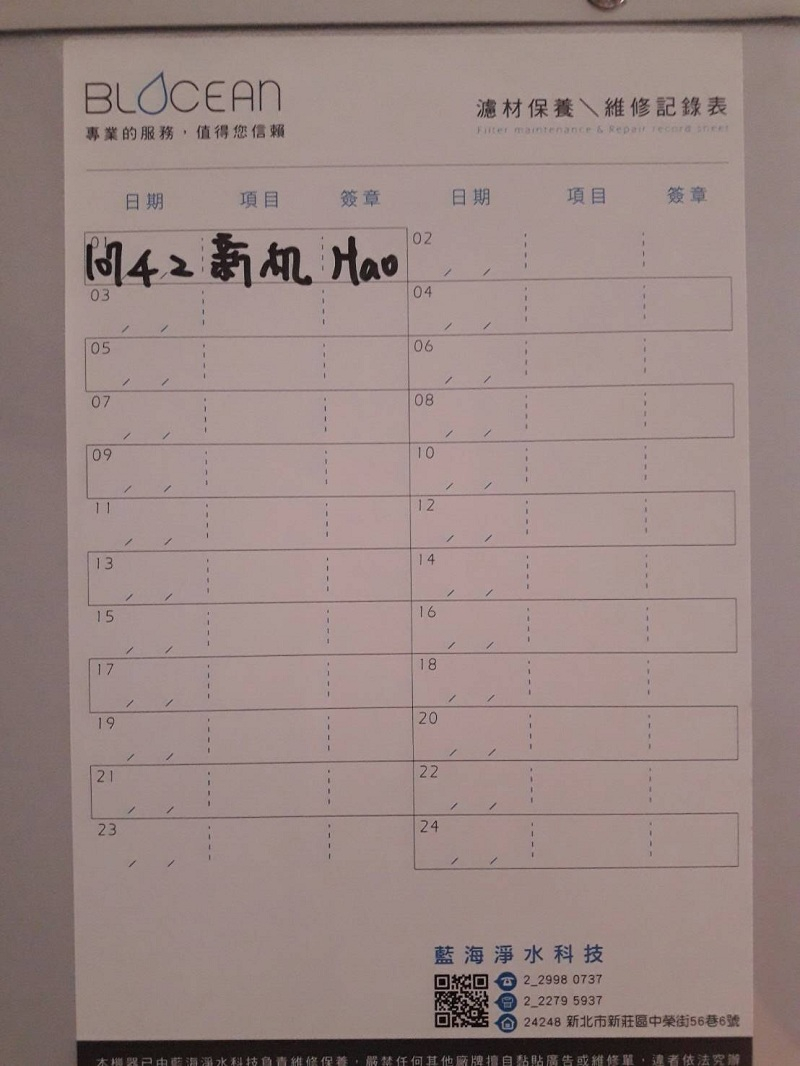 BLOCEAN
專業的服務，值得您信賴
濾材保養＼維修記錄表
Filter maintenance & Repair record sheet
日期 項目 簽章 日期 項目 簽章
01 107 4 2 新机 Hao 02 / /
03 / / 04 / /
05 / / 06 / /
07 / / 08 / /
09 / / 10 / /
11 / / 12 / /
13 / / 14 / /
15 / / 16 / /
17 / / 18 / /
19 / / 20 / /
21 / / 22 / /
23 / / 24 / /
藍海淨水科技
2_2998 0737
2_2279 5937
24248 新北市新莊區中榮街56巷6號
本機器已由藍海淨水科技負責維修保養，嚴禁任何其他廠牌擅自黏貼廣告或維修單，違者依法究辦